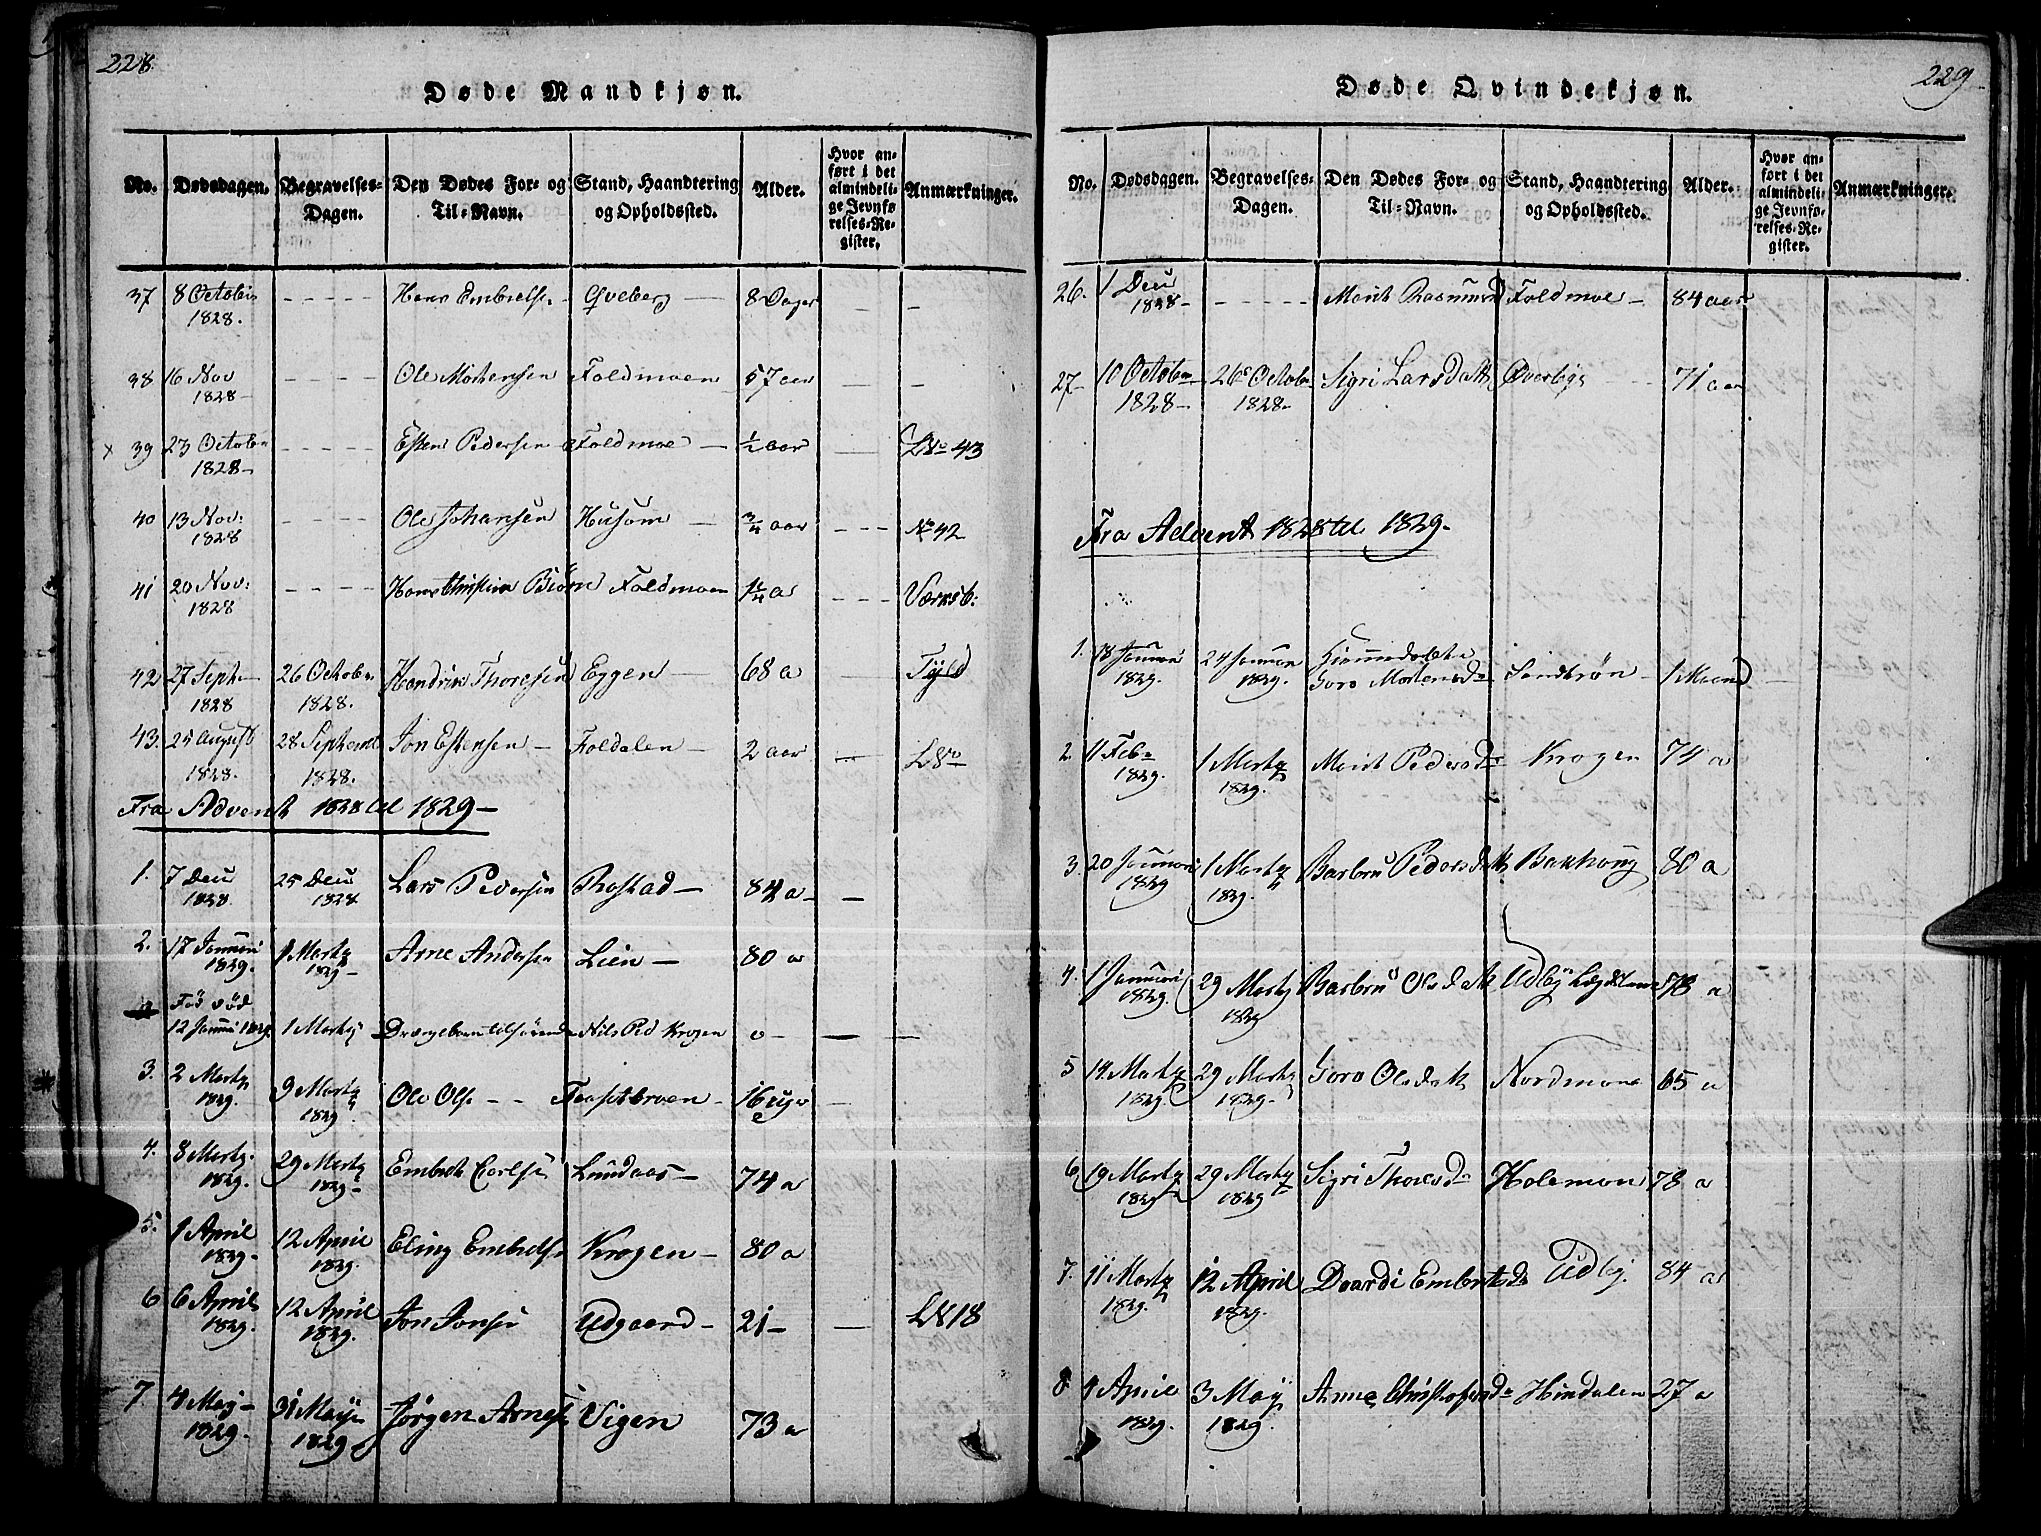 228.
Døde Mandkjøn.
No. Dødsdagen. Begravelses-Dagen. Den Dødes For- og Til-Navn. Stand, Haandtering og Opholdssted. Alder. Hvor anført i det almindelige Jevnførelses-Register. Anmærkninger.
37 8 Octobr 1828. - - - - Hans Embretse Qveberg 8 Dager
38 16 Nov 1828 - - - - Ole Mortensen Foldmoen 57 aar
39 23 Octobr 1828 - - - - Esten Pedersen Foldmoe ½ aar LNo 43
40 13 Nov: 1828 - - - - Ole Johansen Husom ¾ aar No 42
41 20 Nov: 1828 - - - - Hans Christian Biørn Foldmoen 1¼ a
42 27 Septr 1828 26 Octobr 1828. Hendrik Thoresen Eggen 68 a Tyld
43. 25 August 1828. 28 Septemb 1828. Jon Estensen Foldalen 2 aar
Fra Advent 1828 til 1829
1. 7 Decr 1828 25 Decr 1828 Lars Pedersen Rostad 84 a
2. 17 Januari 1829. 1 Martz 1829 Arne Andersen Lien 80 a
Død Fød 12 Januri 1829. 1 Martz Drængebarn tilhørende Nils Ped Krogen 0
3. 2 Martz 1829. 9 Martz 1829. Ole Olse 16 uger
4. 8 Martz 1829. 29 Martz 1829 Embret Carlse Lundaas 74 a
5. 1 April 1829. 12 April 1829. Eling Embretse Krogen 80 a
6 6 April 1829. 12 April 1829. Jon Jonse Udgaard 21 LN 18
7. 4 Maj 1829. 31 Maij 1829 Jørgen Arnes Vigen 73 a
229
Døde Qvindekjøn.
No. Dødsdagen. Begravelses-Dagen. Den Dødes For- og Til-Navn. Stand, Haandtering og Opholdssted. Alder. Hvor anført i det almindelige Jevnførelses-Register. Anmærkninger.
26. 1 Decr 1828 - - - - Marit Rasmusd Foldmoe 84 aar
27 10 Octobr 1828 26 Octobr 1828 Sigri Larsdatt Øverbye 71 aar
Fra Advent 1828 til 1829.
1. 18 Januari 1829. 24 Januari 1829. Hiemmedøbte Goro Mortensd Sandtrøn 1 Maaned
2. 11 Febr 1829. 1 Martz 1829. Marit Pedersd Krogen 74 a
3. 20 Januari 1829 1 Martz 1829. Barbru Pedersdatt Bakhoug 80 a
4. 1 Januari 1829. 29 Martz 1829 Barbru Olsdatt Udby Lægdslem 78 a
5 14 Martz 1829. 29 Martz 1829. Goro Olsdatt Nordmoe 65 a
6 19 Martz 1829 29 Martz 1829 Sigri Thoresd Holemon 78 a
7. 11 Martz 1829. 12 April 1829. Daardi Embretsd Udby 84 a
8 4 April 1829. 3 Maij 1829. Anne Christophersd Hindalen 27 a